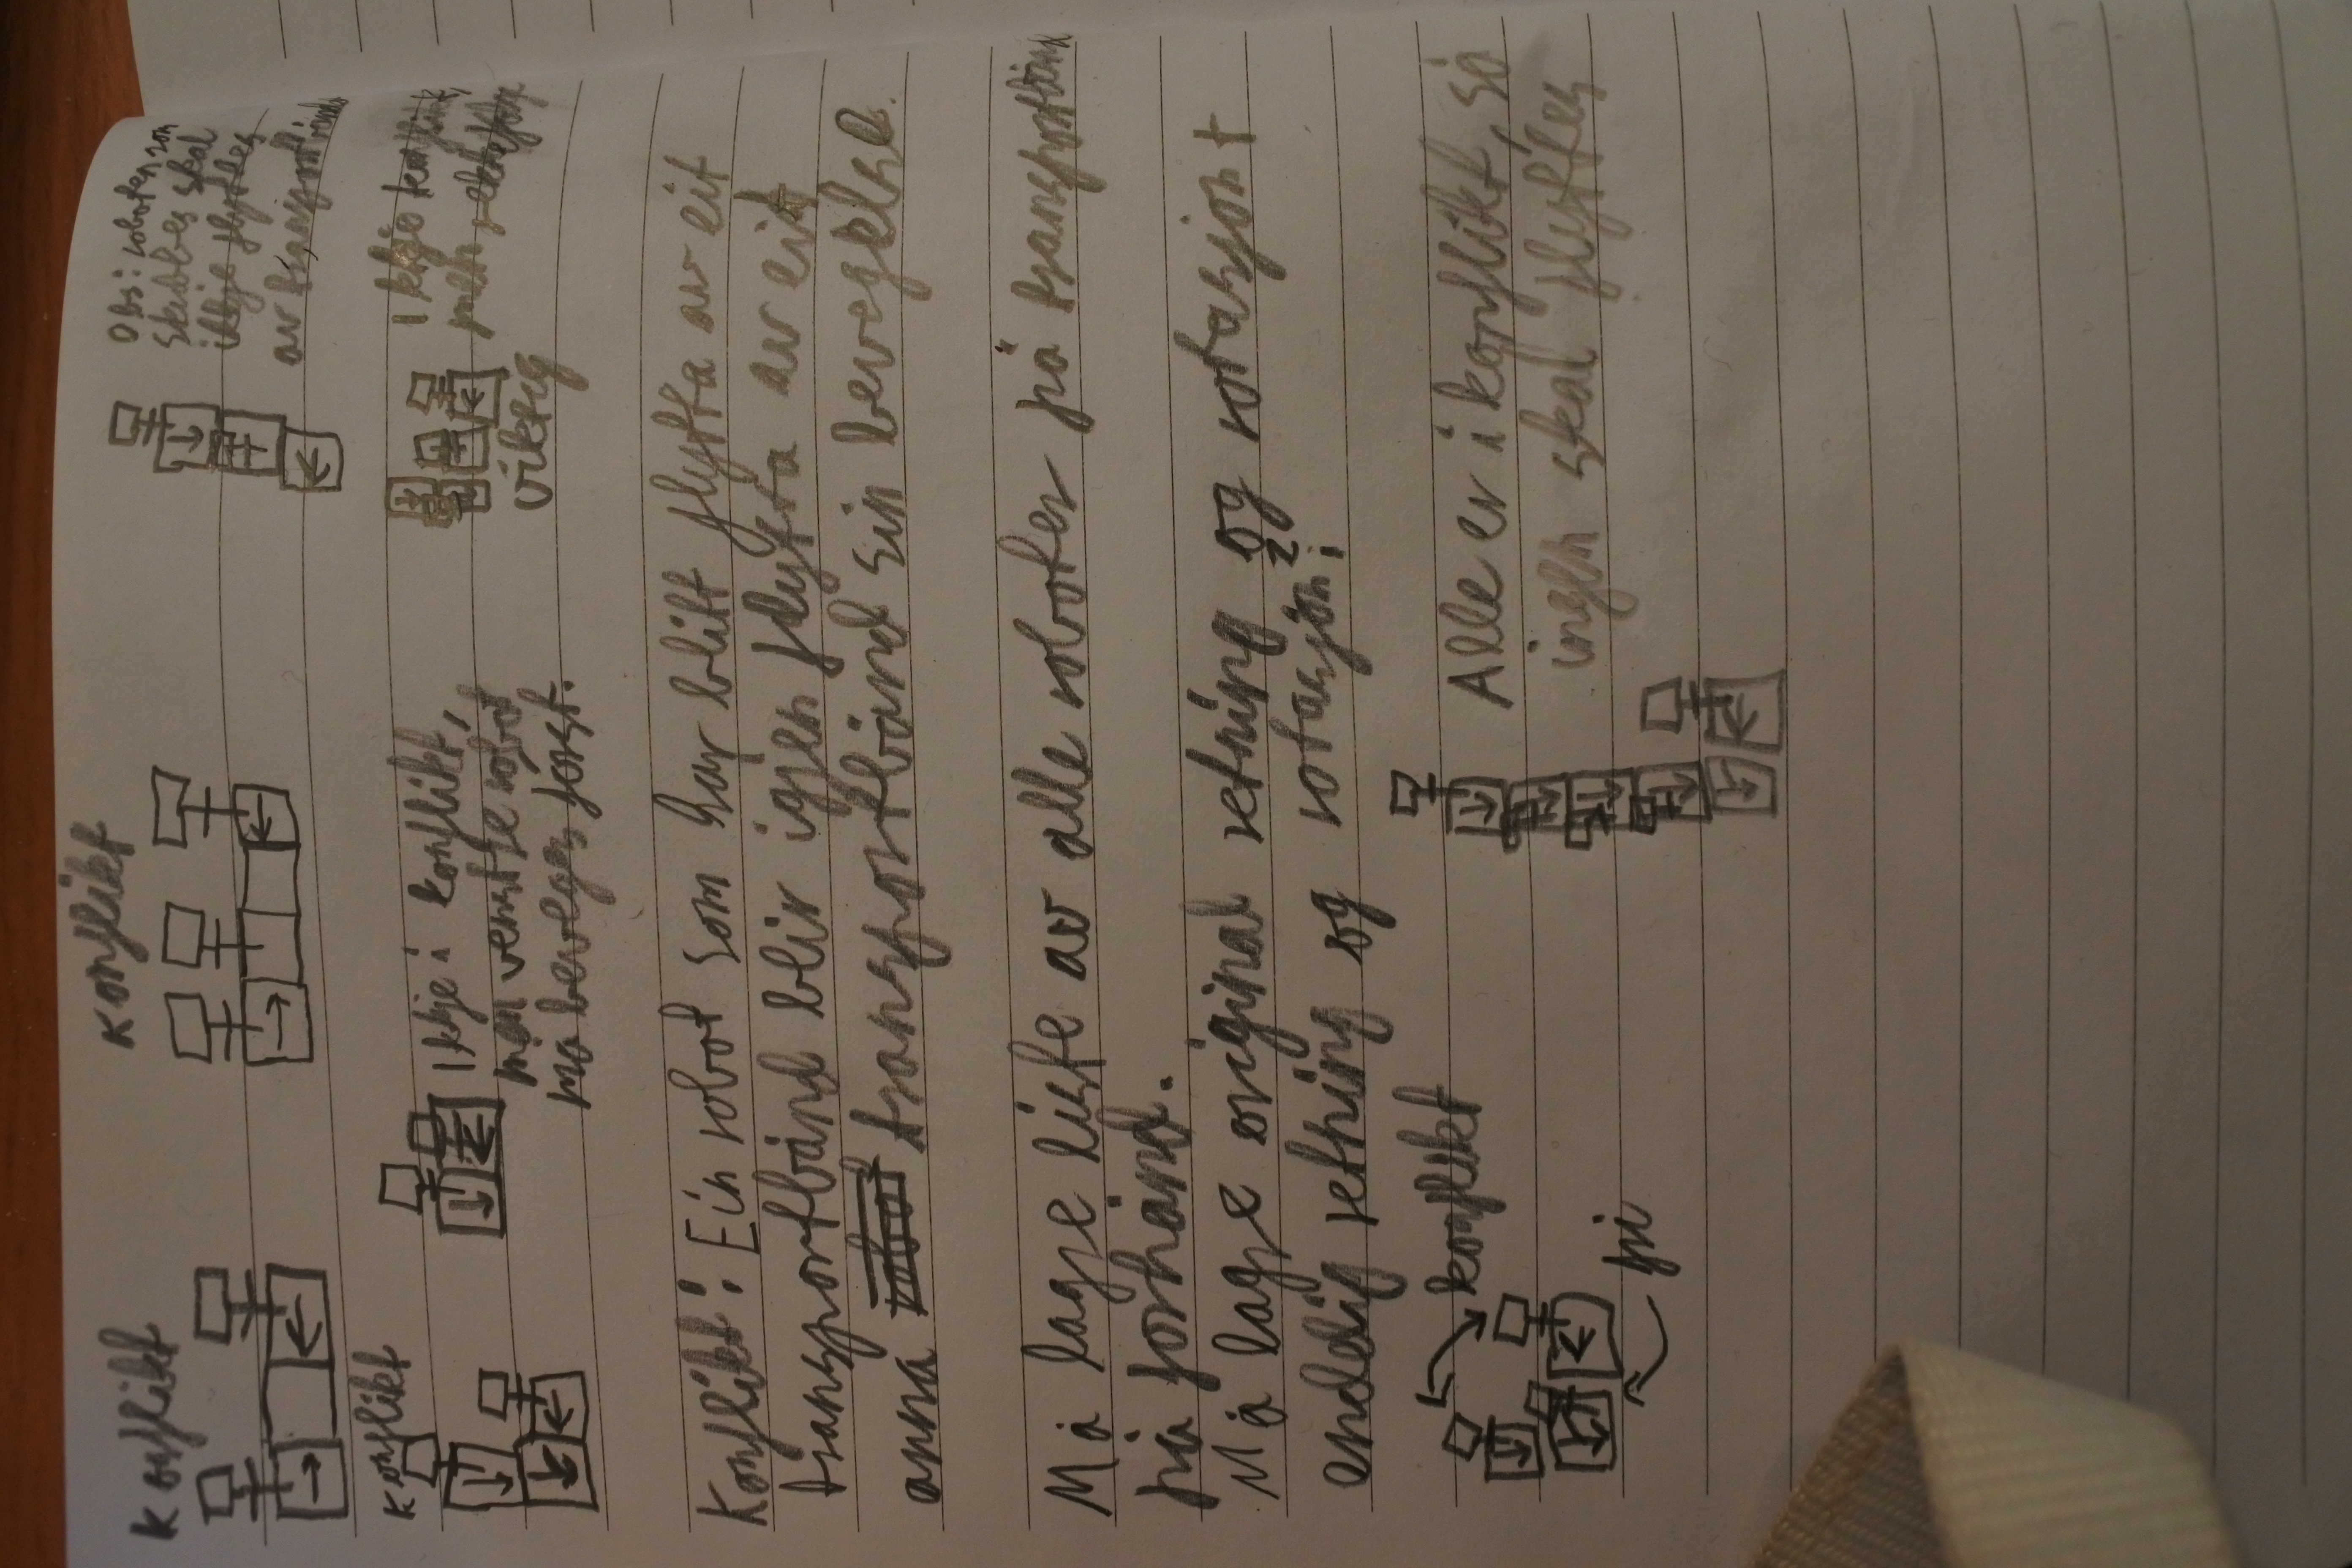 Konflikt
Konflikt
Obs: roboten som
skubbes skal
ikkje flyttes
av transportbånd
Konflikt
Ikkje i konflikt,
men venstre robot
må beveges først.
Ikkje konflikt,
men rekkefølge
viktig
Konflikt: Ein robot som har blitt flytta av eit
transportbånd blir igjen flytta av eit
anna transportbånd sin bevegelse.
Må lage liste av alle roboter på transportbånd
på forhånd.
Må lage original retning og rotasjon +
endelig retning og rotasjon!
konflikt
fri
Alle er i konflikt, så
ingen skal flyttes